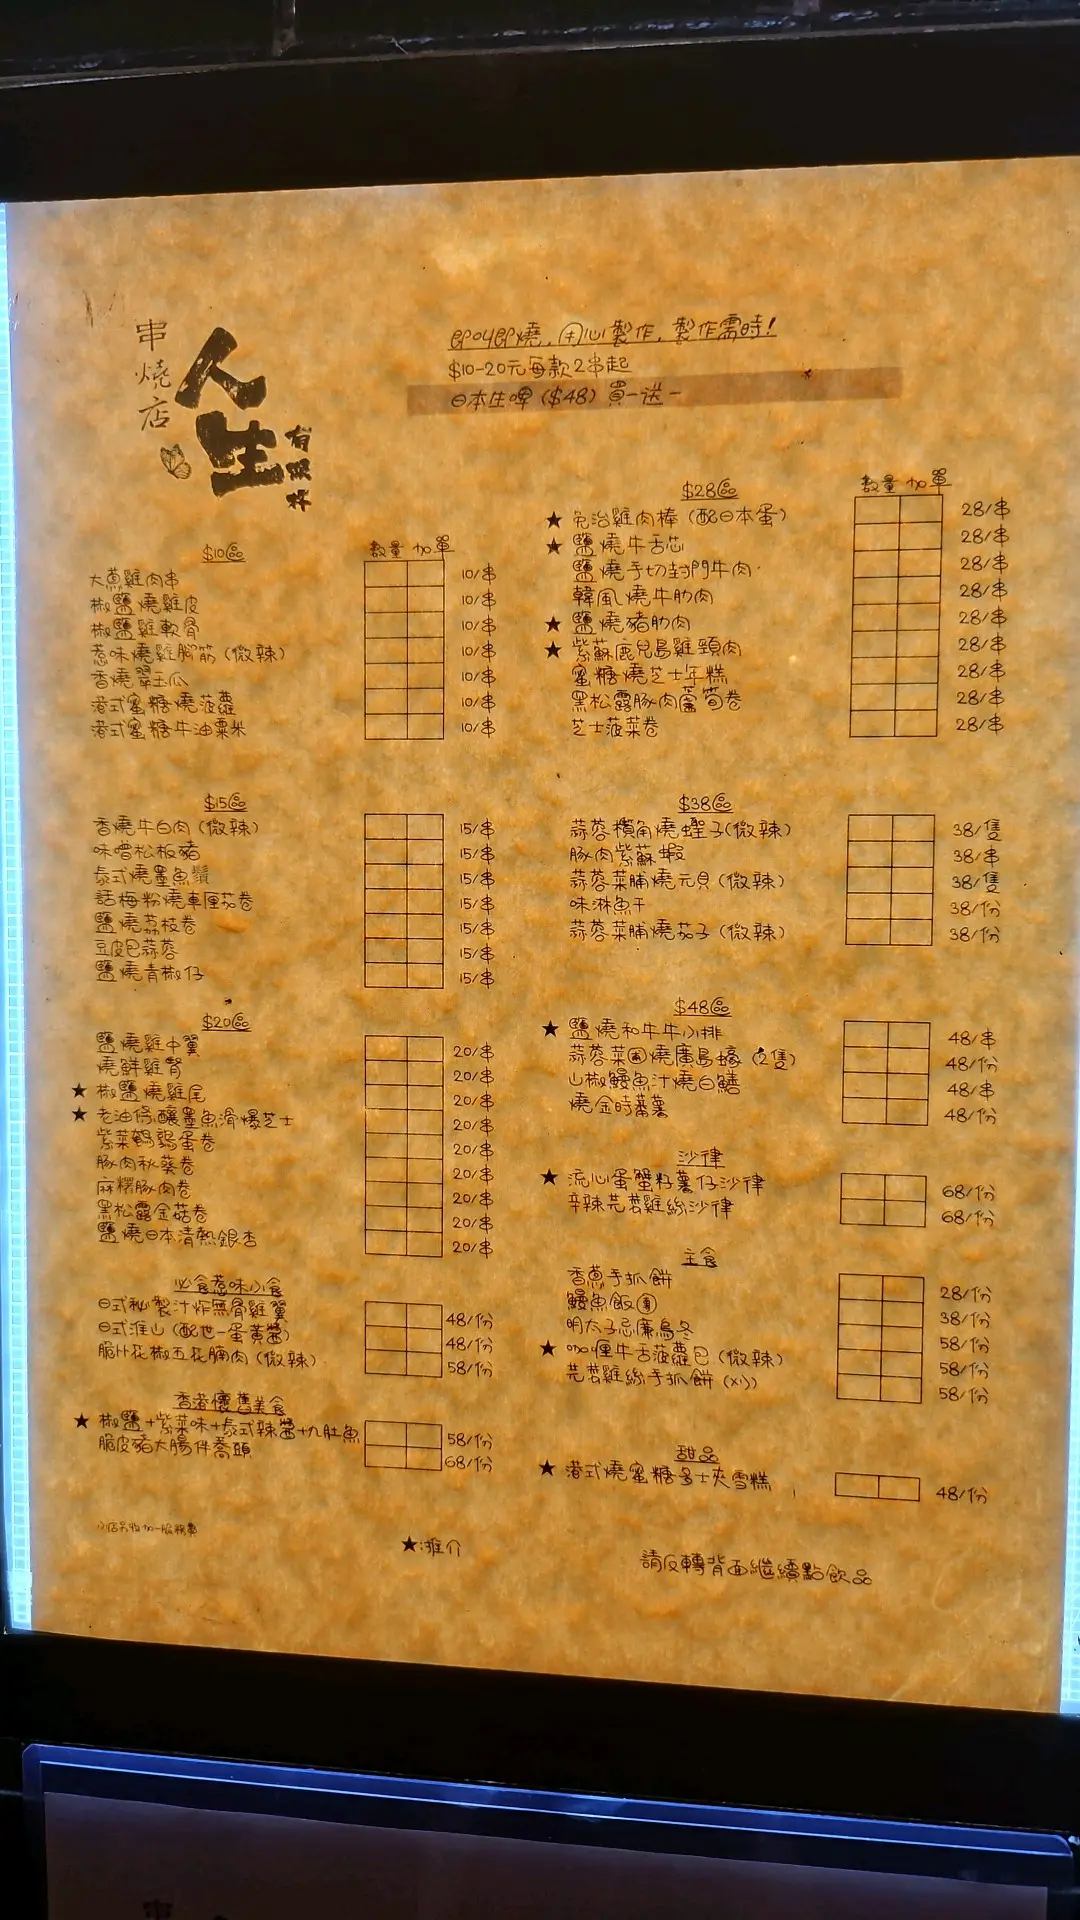 串燒店
人生
有限杯
即叫即燒，用心製作，製作需時！
$10-20元每款2串起
日本生啤（$48）買一送一
$10區 數量 加單
大蔥雞肉串 10/串
椒鹽燒雞皮 10/串
椒鹽雞軟骨 10/串
惹味燒雞腳筋（微辣） 10/串
香燒翠玉瓜 10/串
港式蜜糖燒菠蘿 10/串
港式蜜糖牛油粟米 10/串
$15區
香燒牛白肉（微辣） 15/串
味噌松板豬 15/串
泰式燒墨魚鬚 15/串
話梅粉燒車厘茄卷 15/串
鹽燒荔枝卷 15/串
豆皮巴蒜蓉 15/串
鹽燒青椒仔 15/串
$20區
鹽燒雞中翼 20/串
燒鮮雞腎 20/串
★ 椒鹽燒雞尾 20/串
★ 老油條釀墨魚滑爆芝士 20/串
紫菜鵪鶉蛋卷 20/串
豚肉秋葵卷 20/串
麻糬豚肉卷 20/串
黑松露金菇卷 20/串
鹽燒日本清熱銀杏 20/串
必食惹味小食
日式秘製汁炸無骨雞翼 48/份
日式淮山（配世一蛋黃醬） 48/份
脆卜卜花椒五花腩肉（微辣） 58/份
香港懷舊美食
★ 椒鹽+紫菜味+泰式辣醬+九肚魚 58/份
脆皮豬大腸伴蕎頭 68/份
小店另收加一服務費
$28區 數量 加單
★ 免治雞肉棒（配日本蛋） 28/串
★ 鹽燒牛舌芯 28/串
鹽燒手切封門牛肉 28/串
韓風燒牛肋肉 28/串
★ 鹽燒豬肋肉 28/串
★ 紫蘇鹿兒島雞頸肉 28/串
蜜糖燒芝士年糕 28/串
黑松露豚肉蘆筍卷 28/串
芝士菠菜卷 28/串
$38區
蒜蓉欖角燒蟶子（微辣） 38/隻
豚肉紫蘇蝦 38/串
蒜蓉菜脯燒元貝（微辣） 38/隻
味淋魚干 38/份
蒜蓉菜脯燒茄子（微辣） 38/份
$48區
★ 鹽燒和牛牛小排 48/串
蒜蓉菜甫燒廣島蠔（2隻） 48/份
山椒鰻魚汁燒白鱔 48/串
燒金時蕃薯 48/份
沙律
★ 流心蛋蟹籽薯仔沙律 68/份
辛辣芫荽雞絲沙律 68/份
主食
香蔥手抓餅 28/份
鰻魚飯團 38/份
明太子忌廉烏冬 58/份
★ 咖喱牛舌菠蘿包（微辣） 58/份
芫荽雞絲手抓餅 58/份
甜品
★ 港式燒蜜糖多士夾雪糕 48/份
★:推介
請反轉背面繼續點飲品